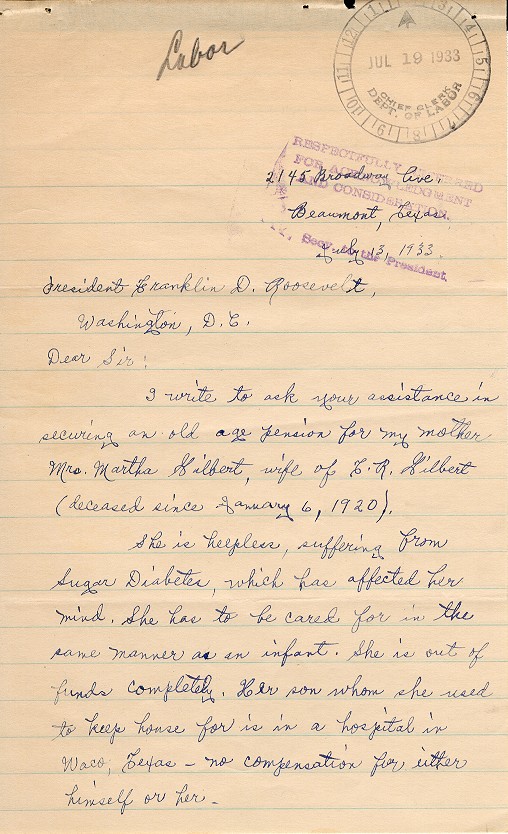 Labor
12 1 3 4 5 6 8 9 10 11
JUL 19 1933
CHIEF CLERK
DEPT. OF LABOR
RESPECTFULLY
FOR ACKNOWLEDGMENT
AND CONSIDERATION.
Secy. to the President
2145 Broadway Ave.
Beaumont, Texas
July 13, 1933.
President Franklin D. Roosevelt,
Washington, D.C.
Dear Sir:
I write to ask your assistance in
securing an old age pension for my mother
Mrs. Martha Gilbert, wife of
Gilbert
(deceased since January 6, 1920).
She is helpless, suffering from
Sugar Diabetes, which has affected her
mind. She has to be cared for in the
same manner as an infant. She is out of
funds completely. Her son whom she used
to keep house for is in a hospital in
Waco, Texas – no compensation for either
himself or her.